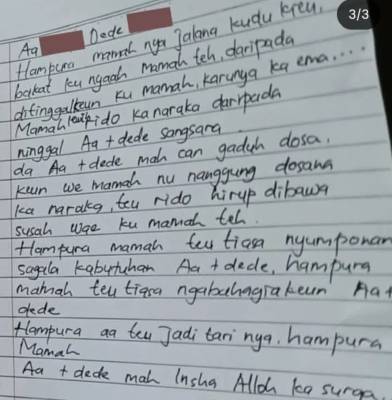 3/3
Aa Dede
Hampura mamah nya jalana kudu kieu,
bakat ku nyaah mamah teh, daripada
ditinggalkeun ku mamah, karunya ka ema....
Mamah rido ka naraka daripada
ninggal Aa + dede sangsara
da Aa + dede mah can gaduh dosa,
keun we mamah nu nanggung dosana
ka naraka, teu rido hirup dibawa
susah wae ku mamah teh.
Hampura mamah teu tiasa nyumponan
sagala kabutuhan Aa + dede, hampura
mamah teu tiasa ngabahagiakeun Aa +
dede
Hampura aa teu jadi tari nya. hampura
Mamah
Aa + dede mah Insha Alloh ka surga